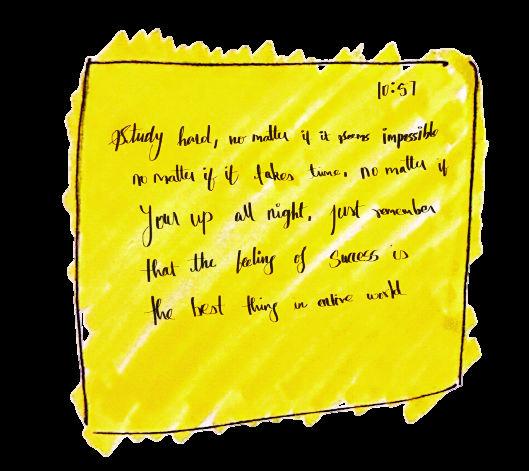 10:57
Study hard, no matter if it seems impossible
no matter if it takes time, no matter if
Your up all night, just remember
that the feeling of success is
the best thing in entire world